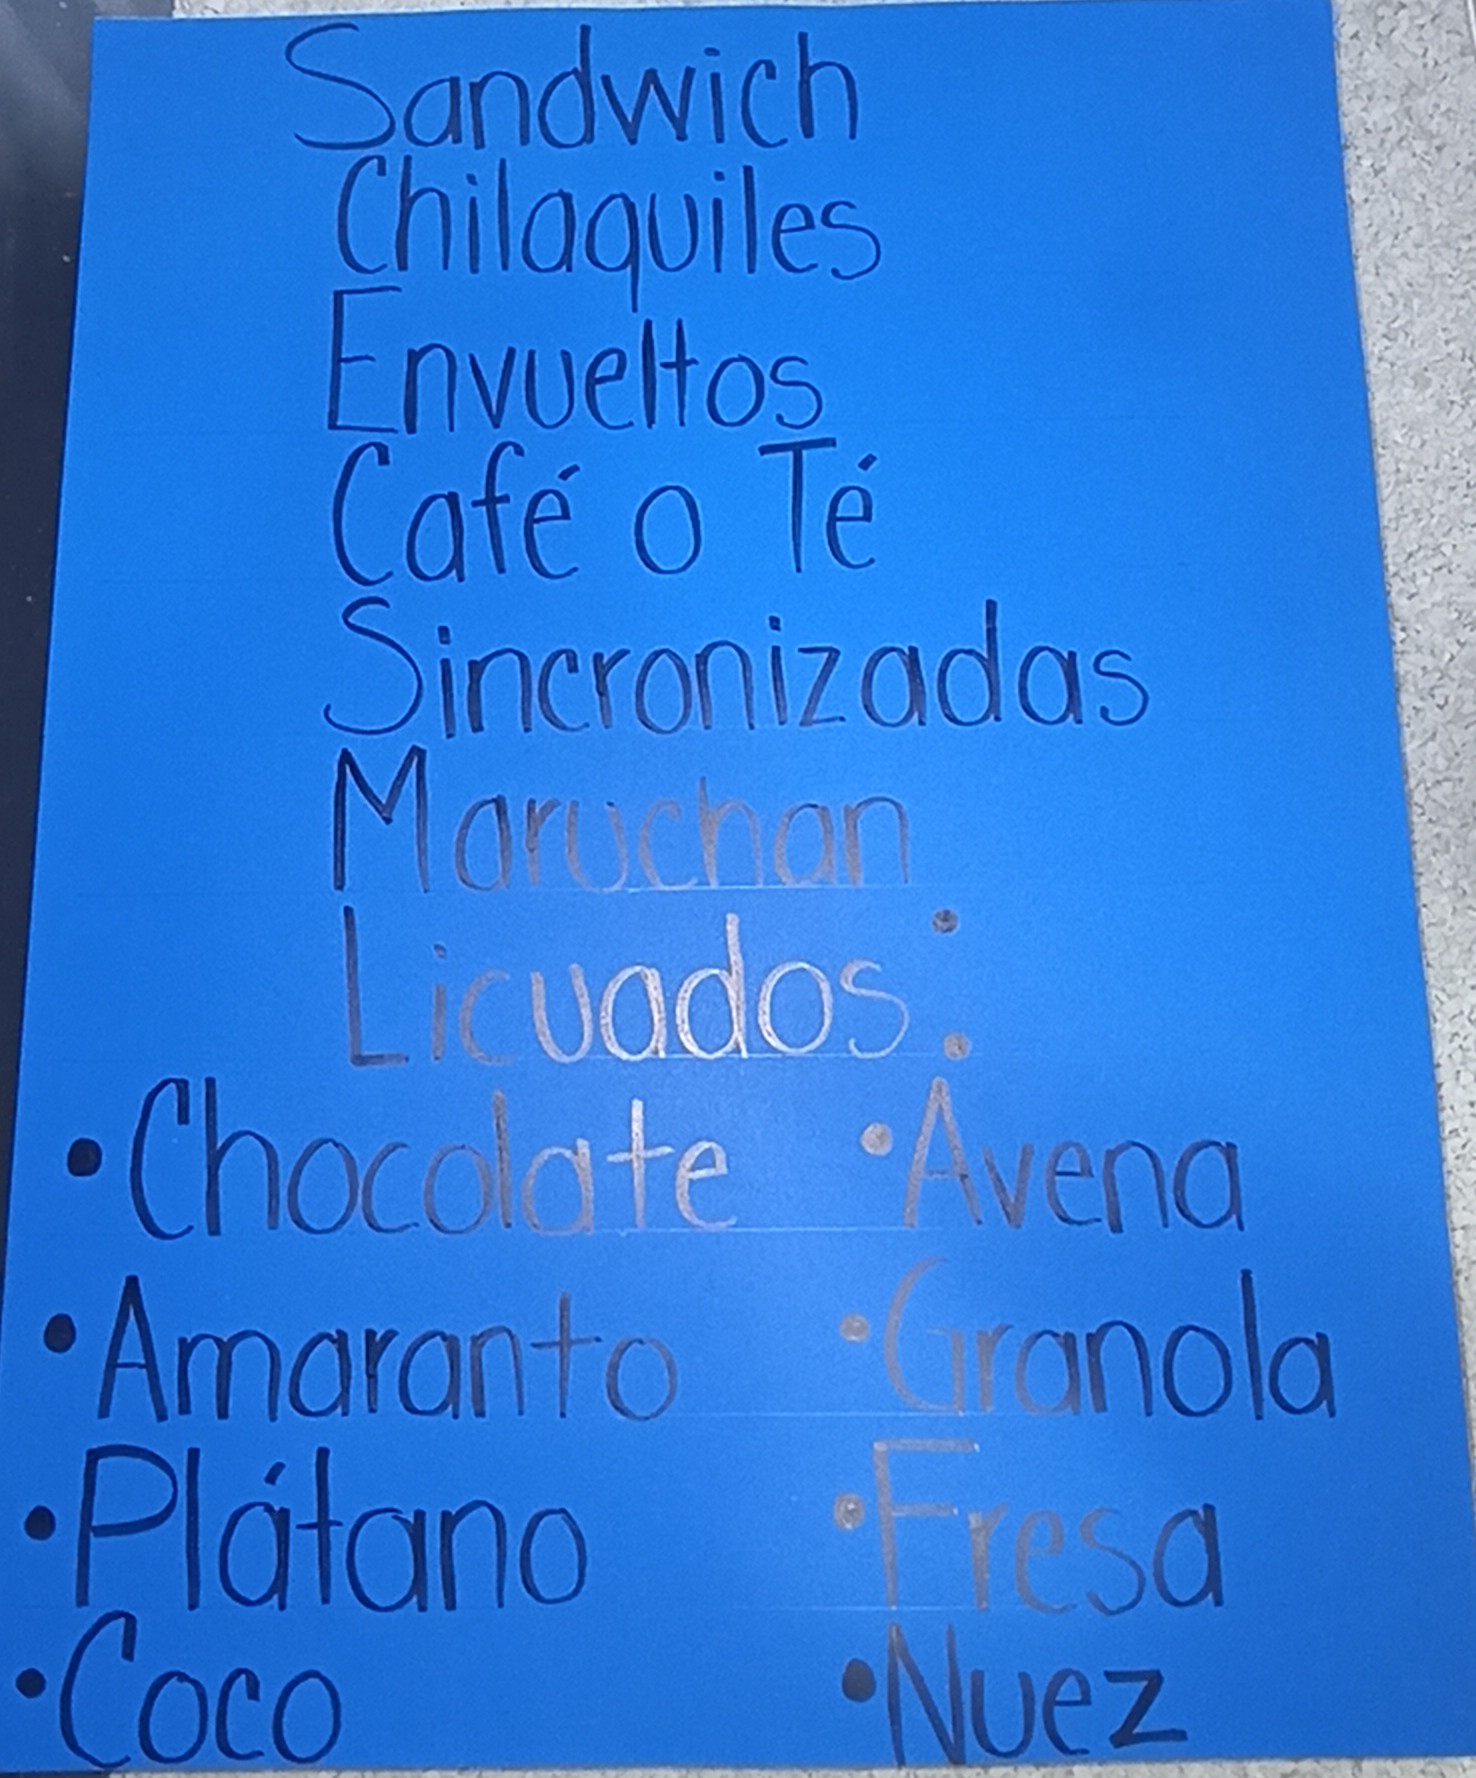 Sandwich
Chilaquiles
Envueltos
Café o Té
Sincronizadas
Maruchan
Licuados:
• Chocolate • Avena
• Amaranto • Granola
• Plátano • Fresa
• Coco • Nuez